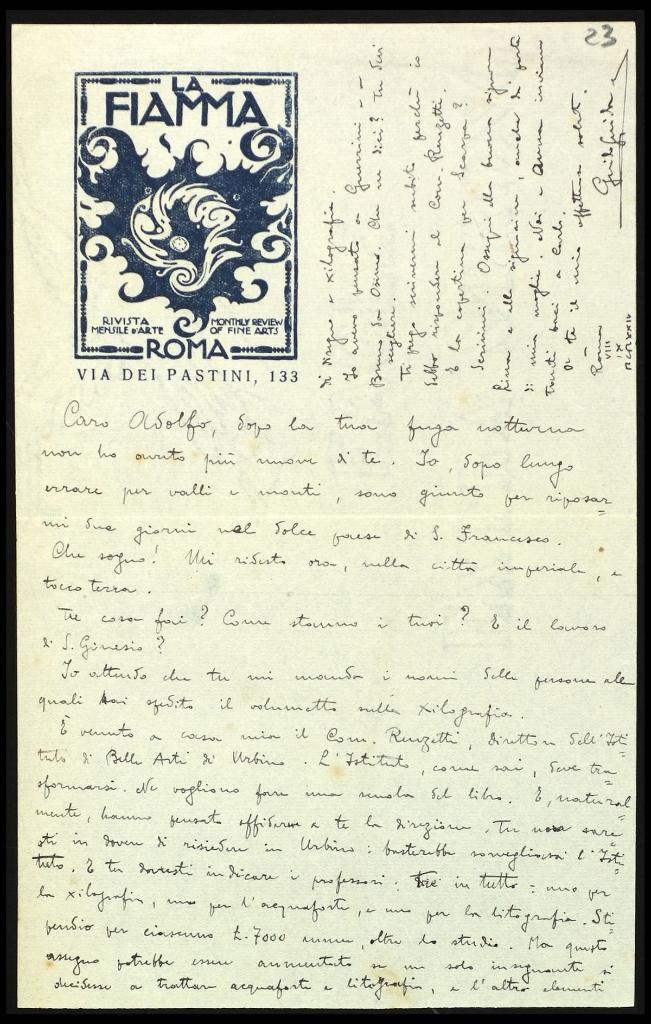 23
LA
FIAMMA
RIVISTA
MENSILE D'ARTE
MONTHLY REVIEW
OF FINE ARTS
ROMA
VIA DEI PASTINI, 133
Caro Adolfo, dopo la tua fuga notturna
non ho avuto più nuove di te. Io, dopo lungo
errare per valli e monti, sono giunto per riposar=
mi due giorni nel dolce paese di S. Francesco.
Che sogno! Mi ridesto ora, nella città imperiale, e
tocco terra.
Tu cosa fai? Come stanno i tuoi? E il lavoro
di S. Ginesio?
Io attendo che tu mi manda i nomi delle persone alle
quali hai spedito il volumetto sulla xilografia.
È venuto a casa mia il Com. Renzetti, direttore dell'Isti
tuto di Belle Arti di Urbino. L'Istituto, come sai, deve tra=
sformarsi. Ne vogliono fare una scuola del libro. E, natural
mente, hanno pensato affidare a te la direzione. Tu non sare=
sti in dovere di risiedere in Urbino: basterebbe sorvegliassi l'Isti
tuto. E tu dovresti indicare i professori: tre in tutto = uno per
la xilografia, uno per l'acquaforte, e uno per la litografia. Sti
pendio per ciascuno £. 7000 annue, oltre lo studio. Ma questo
assegno potrebbe essere aumentato se un solo insegnante si
decidesse a trattare acquaforte e litografia, e l'altro elementi
di disegno e xilografia.
Io avevo pensato a Guerrini e a
Bruno da Osimo. Che ne dici? Tu devi
scegliere.
Ti prego scrivermi subito perchè io
debbo rispondere al Com. Renzetti.
E la copertina per Scarpa?
Scrivimi. Ossequi alla buona signora
e alla signorina, anche da parte
di mia moglie. Noi e Anna inviamo
tanti baci a Carlo.
A te il mio affettuoso saluto.
Guido Guida
Roma
VIII
IX
MCMXXIV